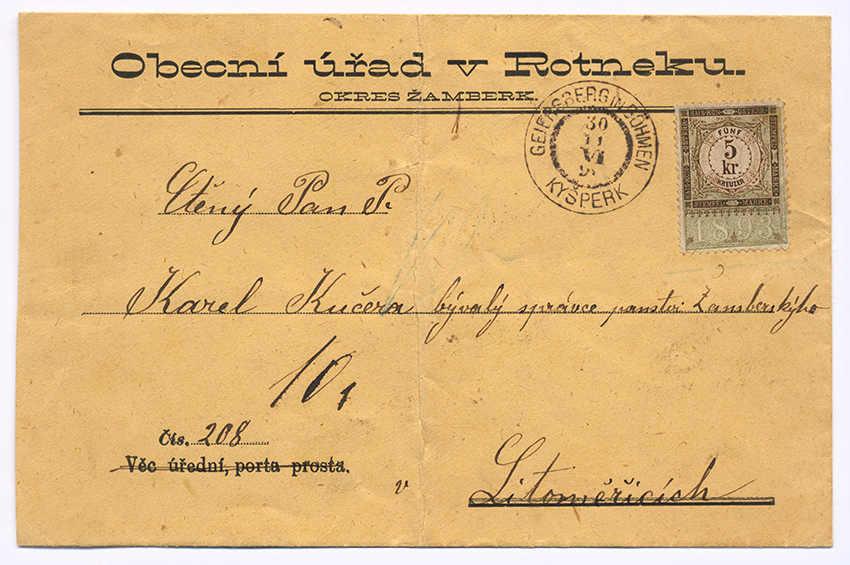 Obecní úřad v Rotneku.
OKRES ŽAMBERK.
GEIERSBERG IN BÖHMEN
30
11
VI
KYŠPERK
KAIS. KÖN. ÖSTERR.
FÜNF
5
kr.
KREUZER
STEMPEL MARKE
1893
Ctěný Pan P.
Karel Kučera bývalý správce panství Žamberskýho
10
Čís. 208
Věc úřední, porta prosta.
v
Litoměřicích